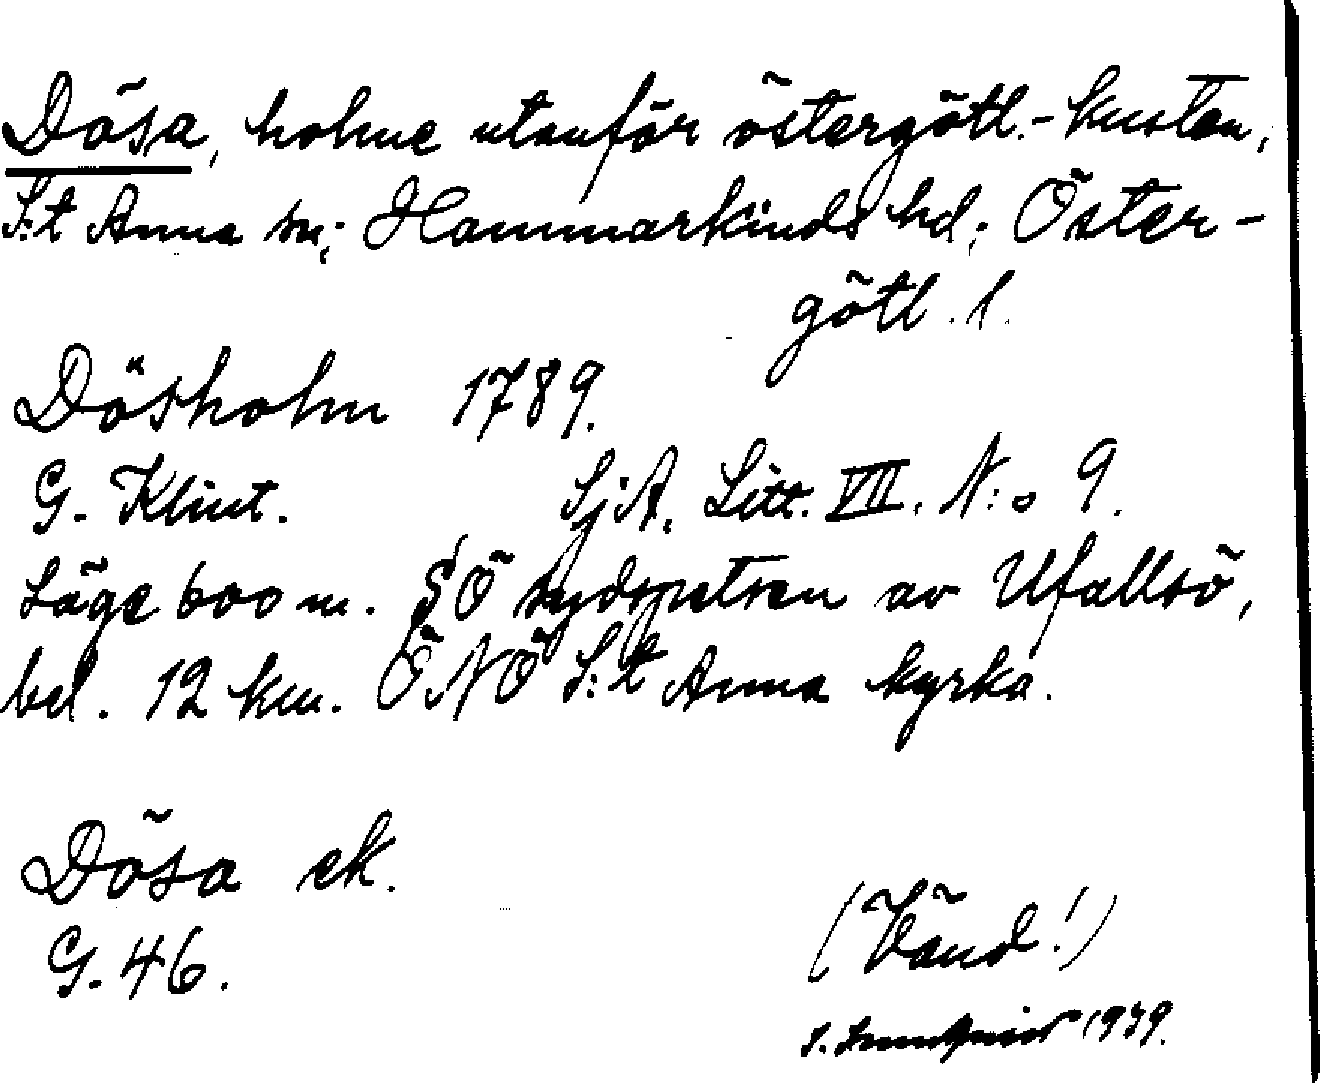 Dösa, holme utanför östergötl.-kusten,
S:t Anna sn; Hammarkinds hd; Öster-
götl. l.
Dösholm 1789.
G. Klint. SjA. Litt. VII. N:o 9.
Läge 600 m. SÖ sydspetsen av Ufallsö,
bel. 12 km. ÖNÖ S:t Anna kyrka.
Dösa ek.
G. 46.
(Vänd!)
1939.